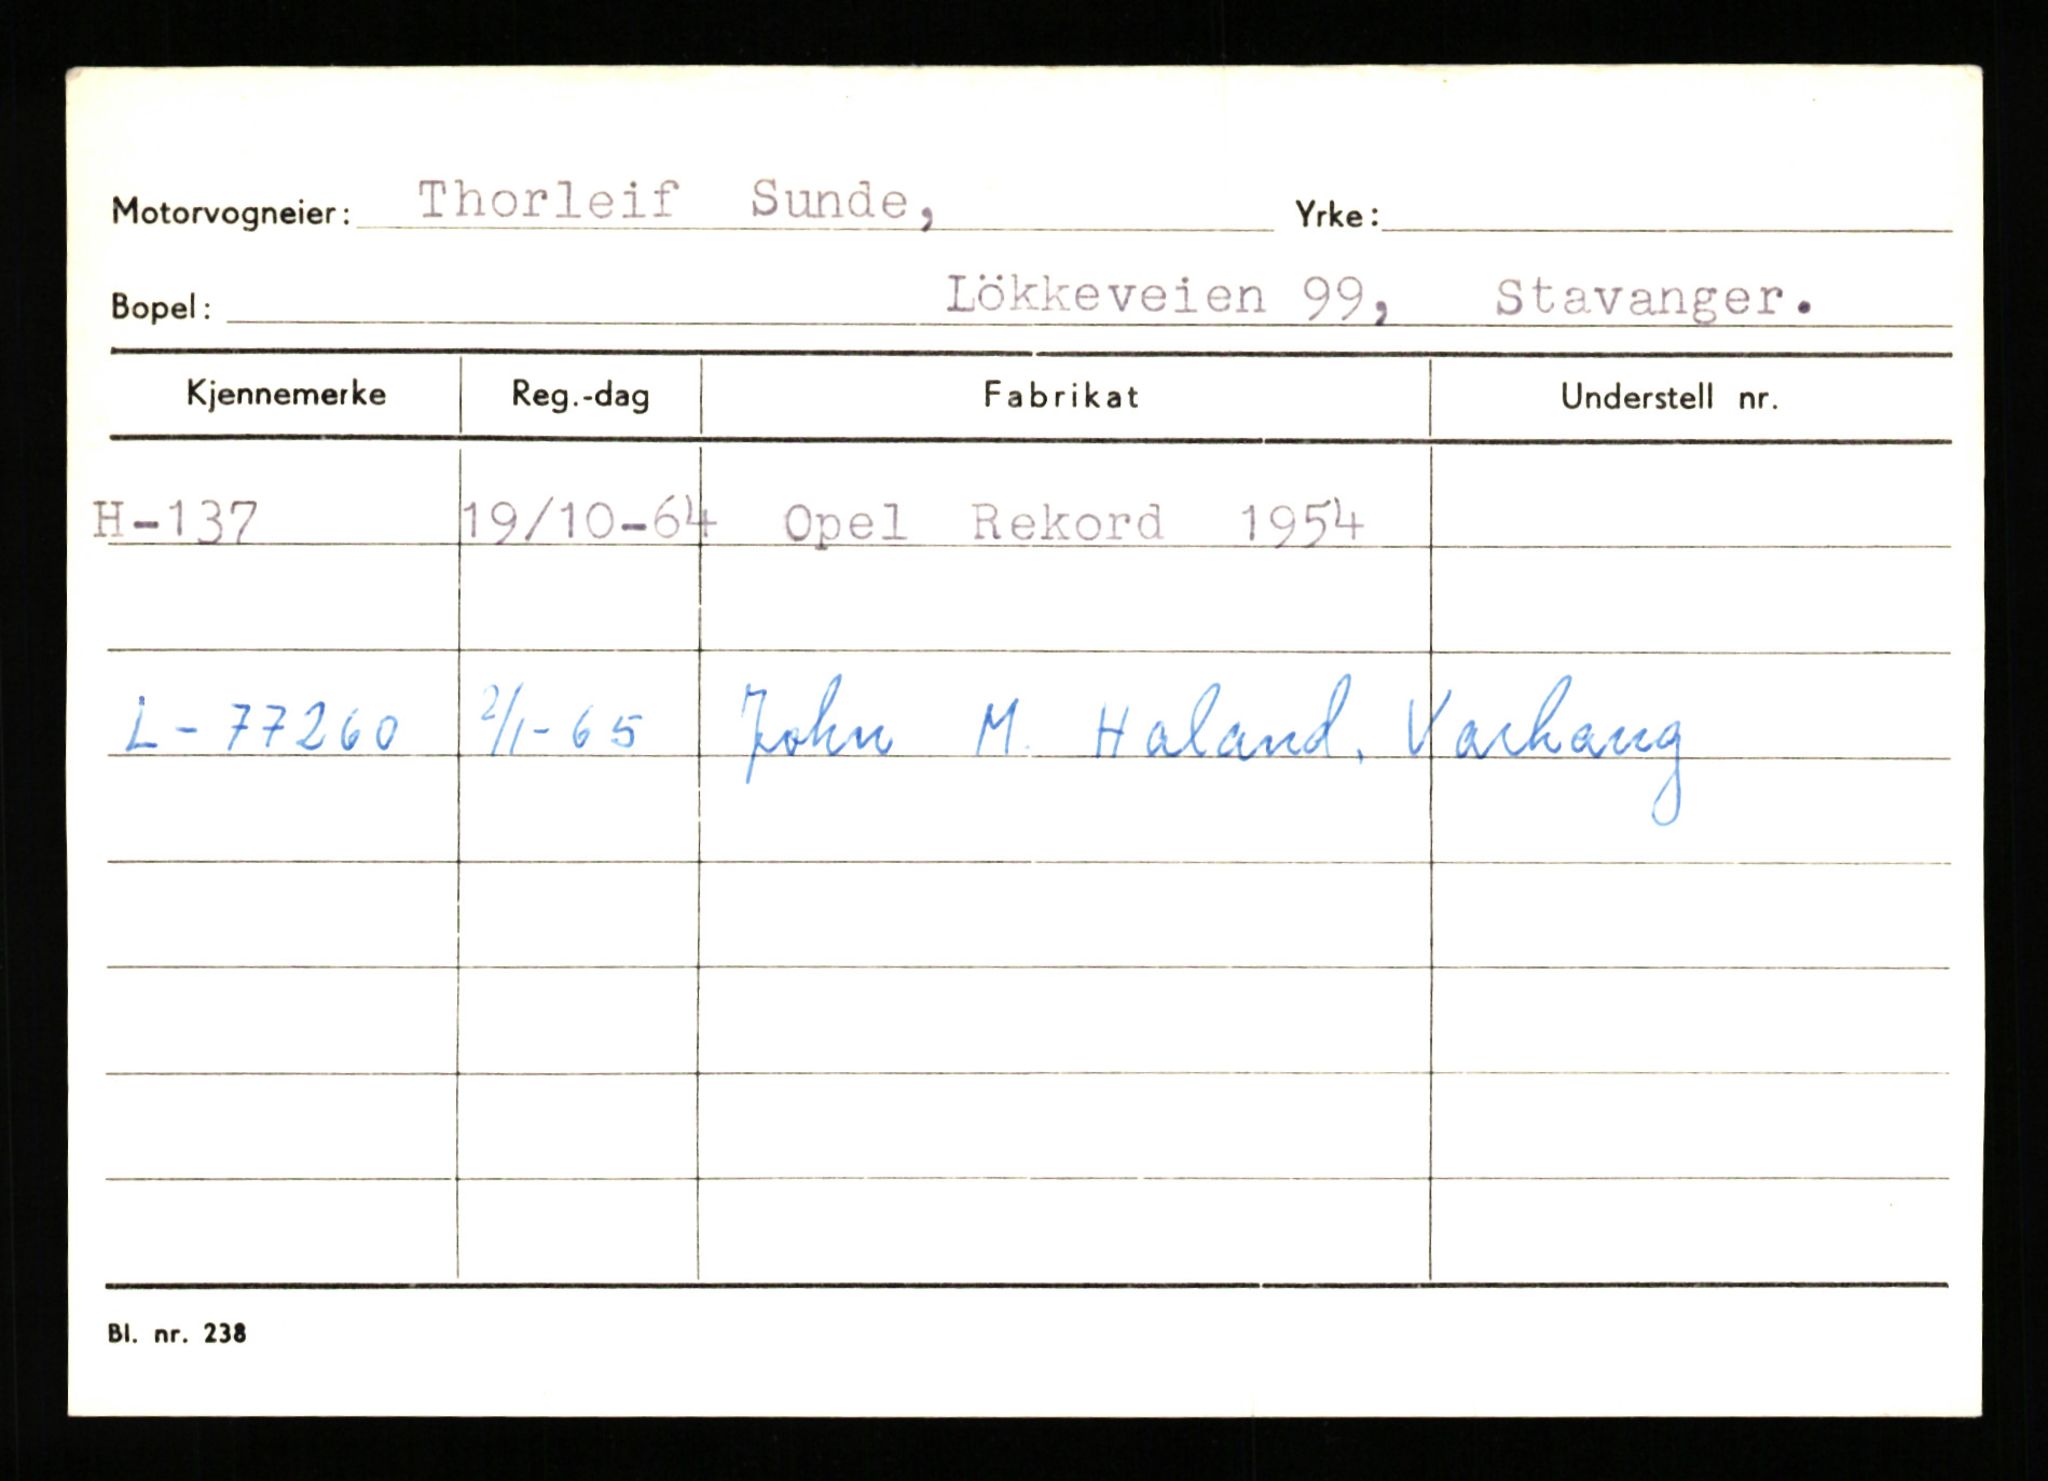 Motorvogneier: Thorleif Sunde, Yrke:
Bopel: Lökkeveien 99, Stavanger.
Kjennemerke Reg.-dag Fabrikat Understell nr.
H-137 19/10-64 Opel Rekord 1954
L-77260 2/1-65 John M. Haland, Varhaug
Bl. nr. 238